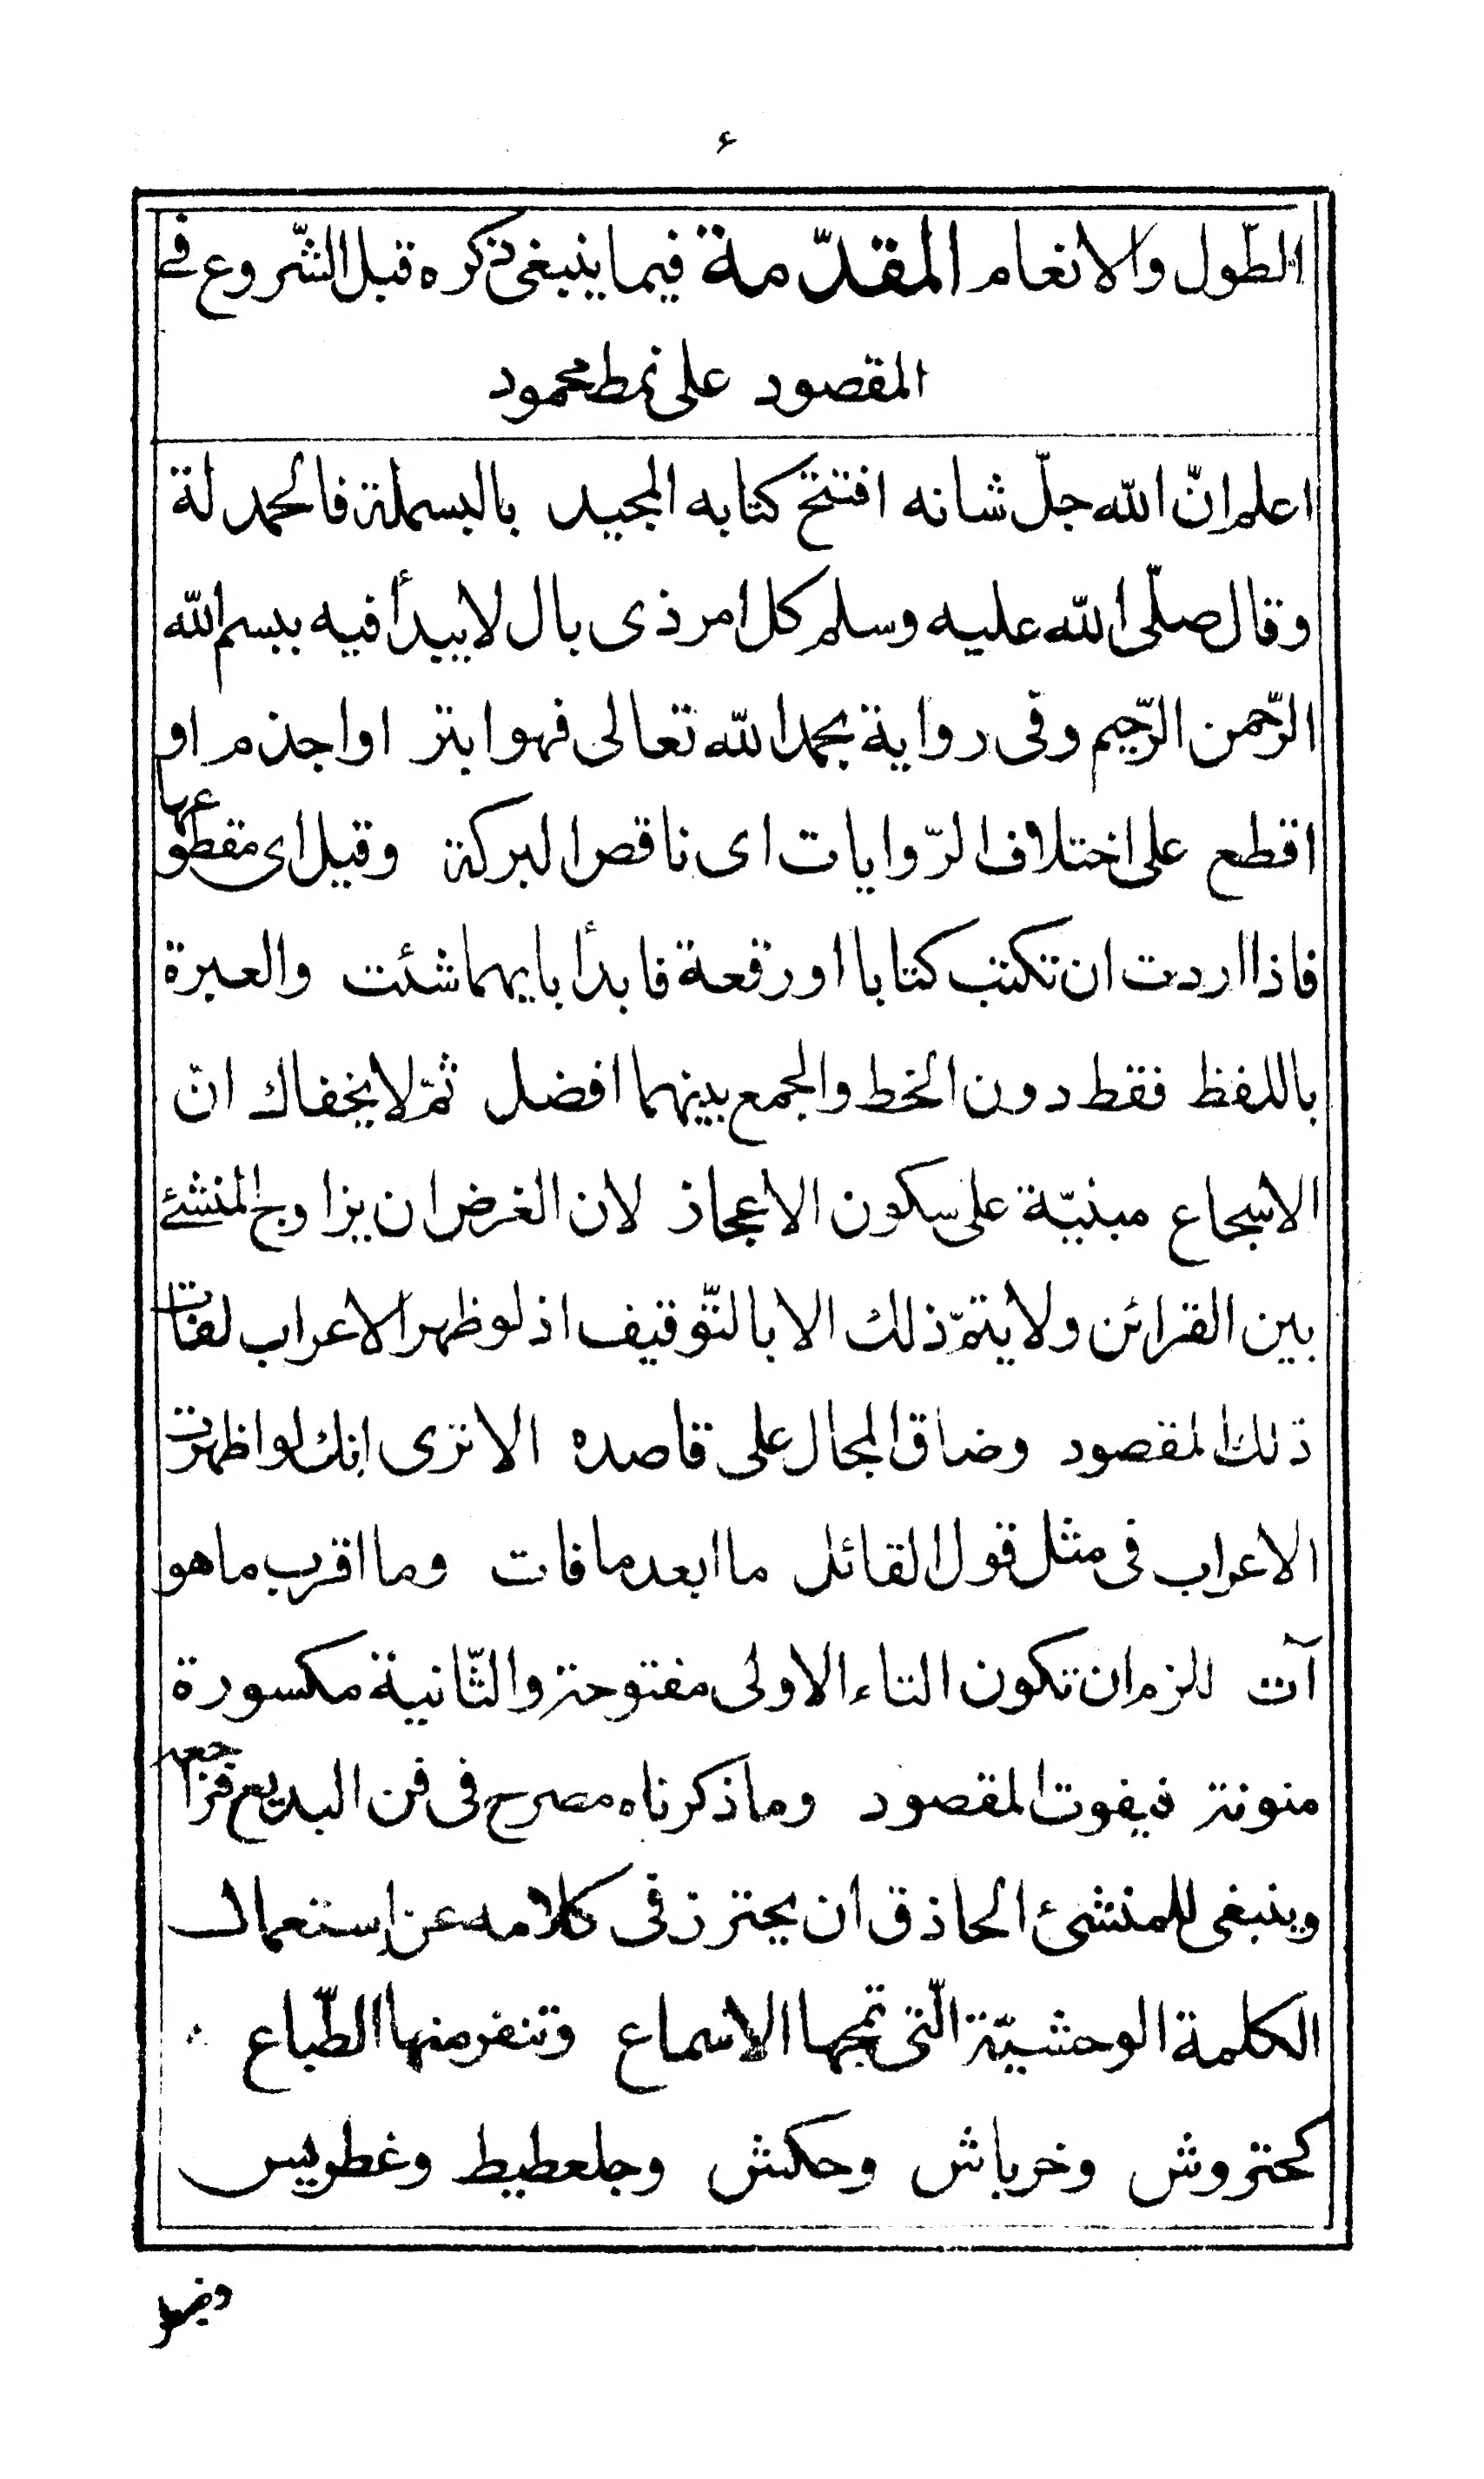 ۶
الطّول والانعام المقدّمة فيما ينبغى ذكره قبل الشّروع فے
المقصود على نمط محمود
اعلم انّ الله جلّ شانه افتتح كتابه المجيد بالبسملة فالحمد لة
وقال صلّى الله عليه وسلم كل امر ذى بال لا يبدأ فيه ببسم الله
الرّحمن الرّحيم وفى رواية بحمد الله تعالى فهو ابتر او اجذم او
اقطع على اختلاف الرّوايات اى ناقص البركة وقيل اى مقطوعها
فاذا اردت ان تكتب كتابا او رقعة فابدأ بايهما شئت والعبرة
باللفظ فقط دون الخط والجمع بينهما افضل ثمّ لا يخفاك انّ
الاسجاع مبنيّة على سكون الاعجاز لان الغرض ان يزاوج المنشئے
بين القرائن ولا يتمّ ذلك الا بالتّوقيف اذ لو ظهر الاعراب لفات
ذلك المقصود وضاق المجال على قاصده الا ترى انك لو اظهرت
الاعراب فى مثل قول القائل ما ابعد ما فات وما اقرب ما هو
آت للزم ان تكون التاء الاولى مفتوحة والثّانية مكسورة
منونة فيفوت المقصود وما ذكرناه مصرح فى فن البديع فراجعه
وينبغى للمنشئ الحاذق ان يحترز فى كلامه عن استعمال
الكلمة الوحشيّة الّتى تمجها الاسماع وتنفر منها الطّباع
كحتروش وخرباش وحكش وجلعطيط وغطريس